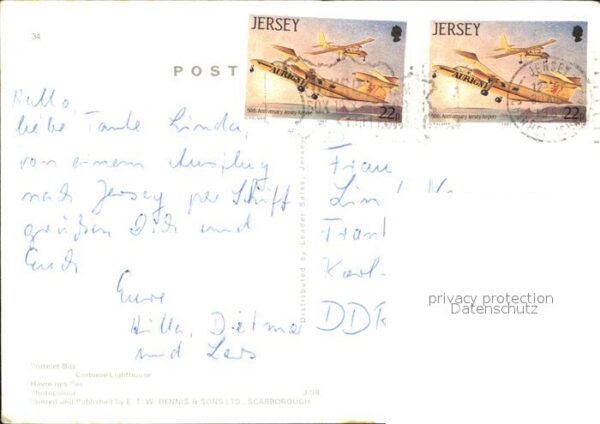 34
POST
JERSEY
AURIGNY
50th Anniversary Jersey Airport
22p
JERSEY
AURIGNY
50th Anniversary Jersey Airport
22p
JERSEY
Hallo,
liebe Tante Linda,
von einem Ausflug
nach Jersey per Schiff
grüßen Dich und
Euch
Eure
Hilla, Dietmar
und Lars
Frau
Lin
Frank
Karl-
DDR
Distributed by Leader Sales, Jersey
privacy protection
Datenschutz
Portelet Bay
Corbiere Lighthouse
Havre des Pas
Photocolour
J.08
Printed and Published by E. T. W. DENNIS & SONS LTD., SCARBOROUGH